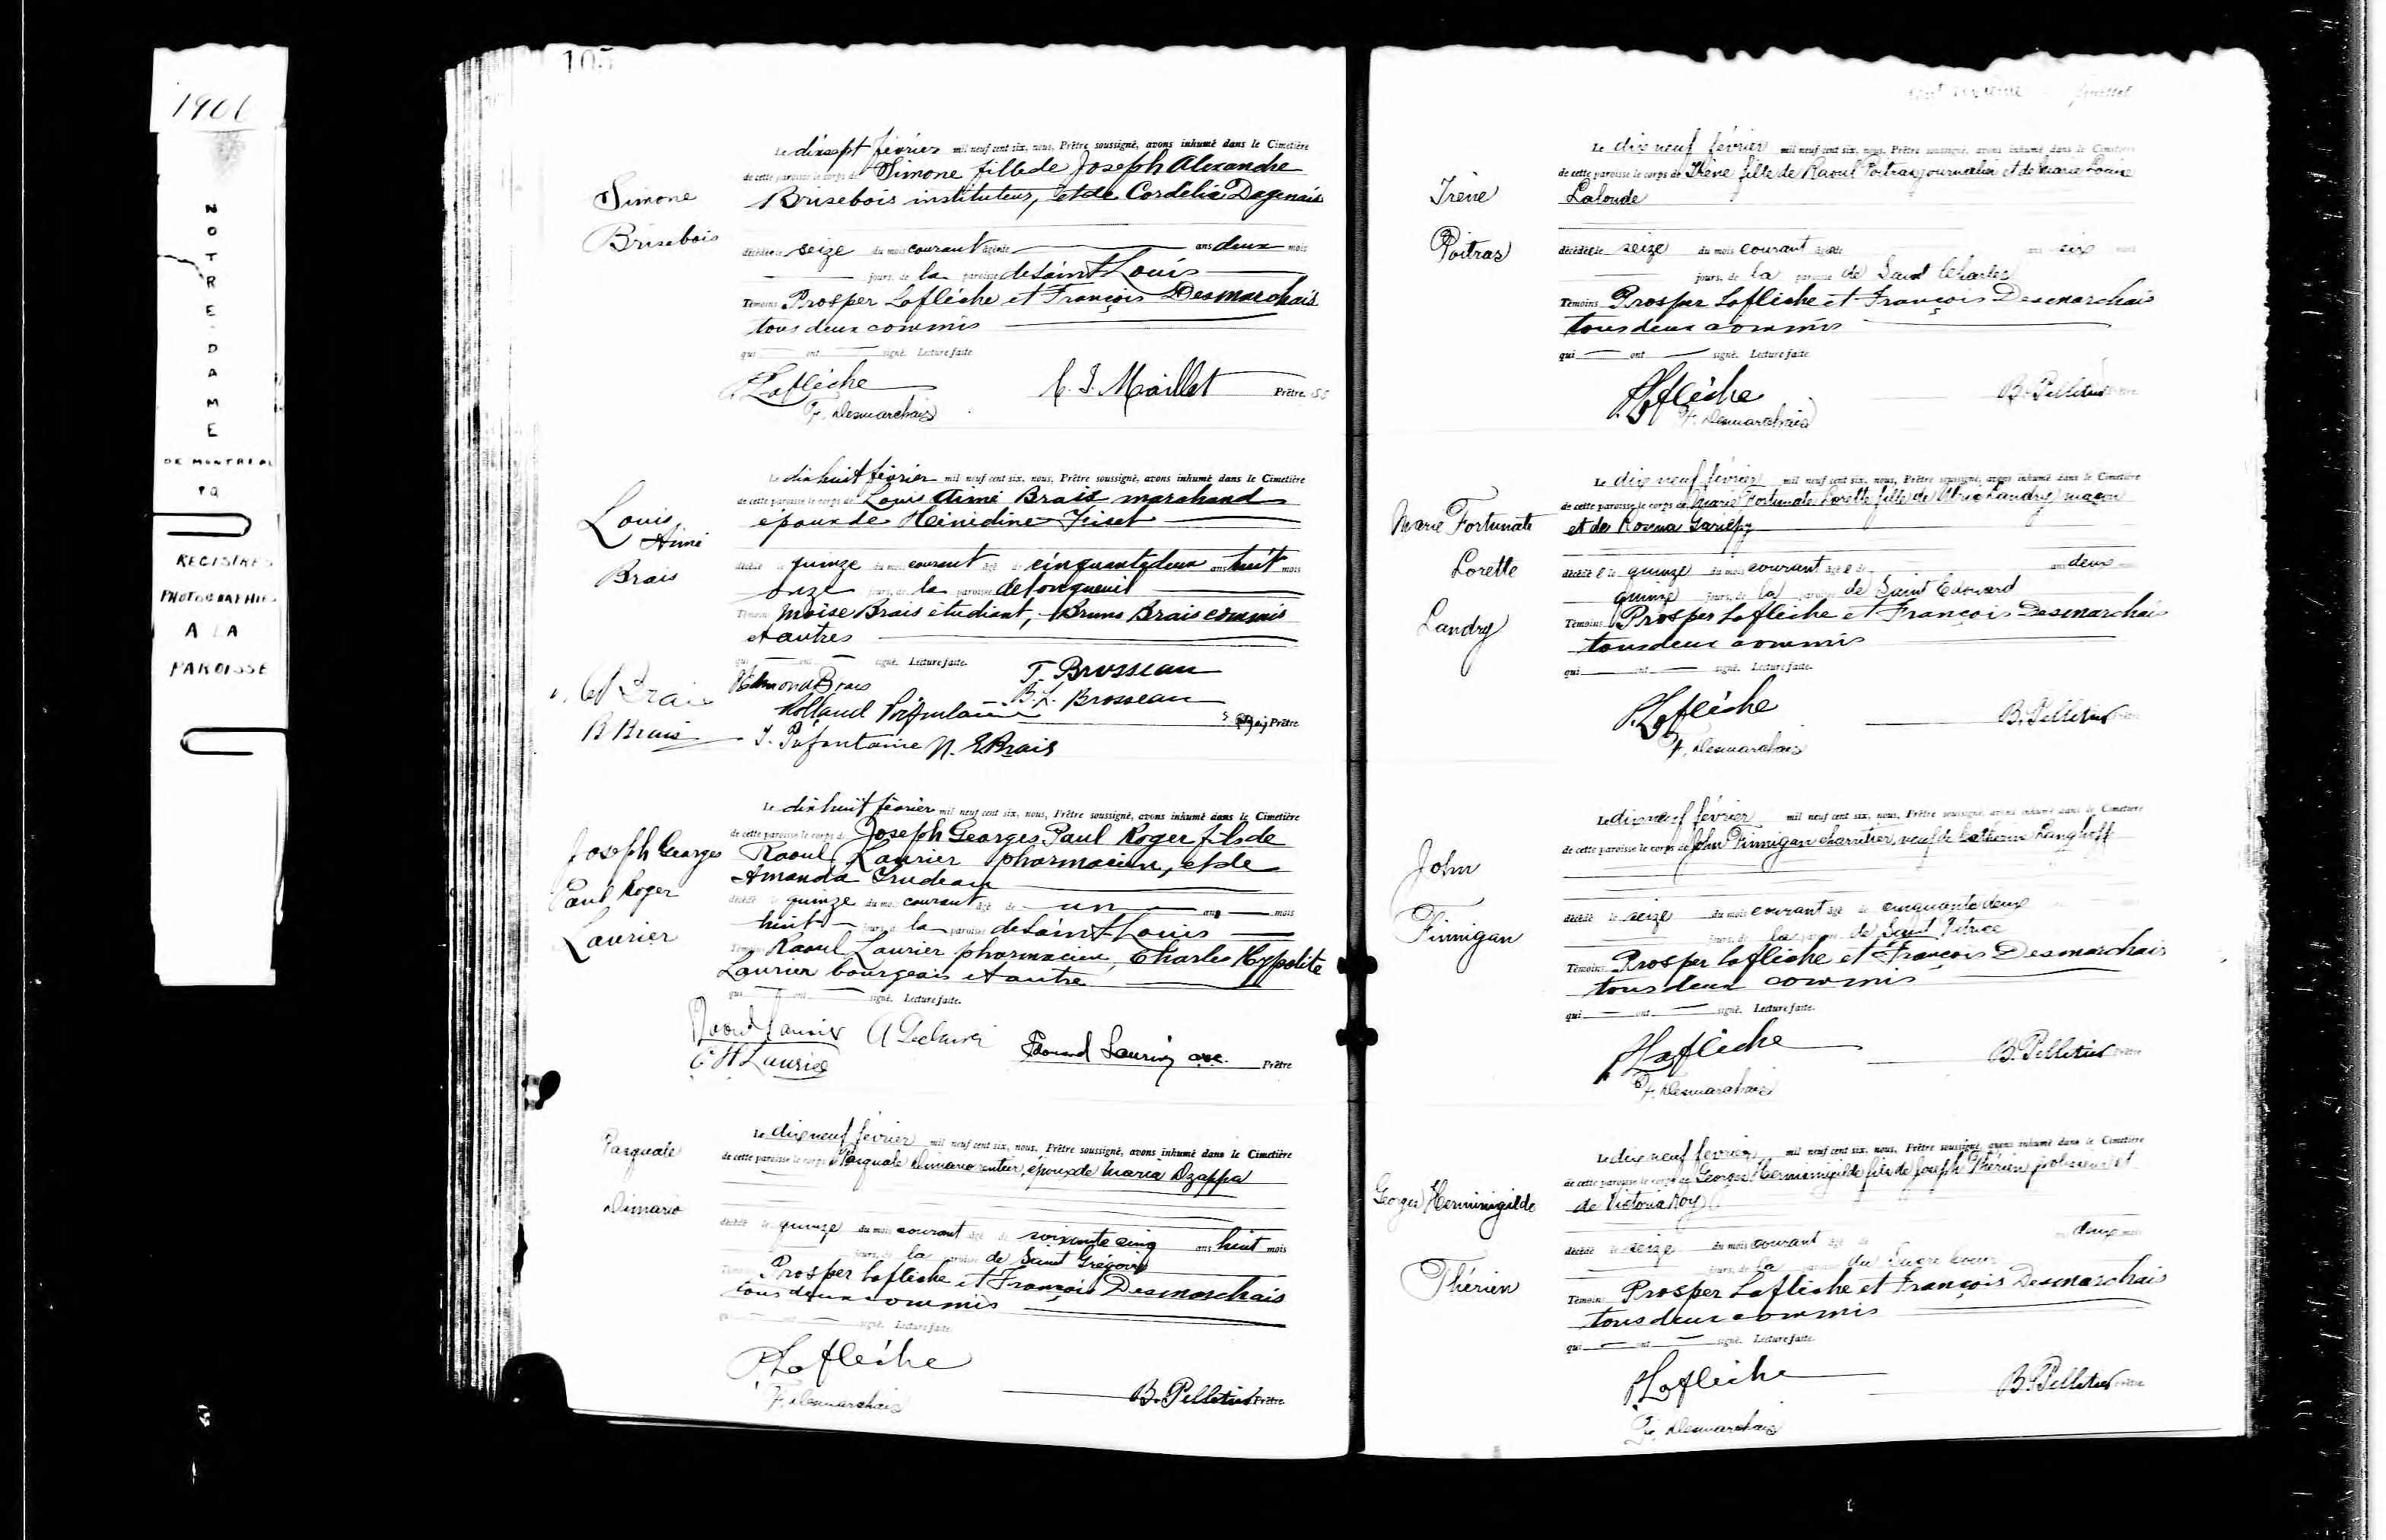 1906
NOTRE-DAME
DE MONTREAL
PQ
REGISTRES
PHOTOGRAPHIES
A LA
PAROISSE
105
Simone
Brisebois
Le dixsept février mil neuf cent six, nous, Prêtre soussigné, avons inhumé dans le Cimetière
de cette paroisse le corps de Simone fille de Joseph Alexandre
Brisebois instituteur, et de Cordélia Dagenais
décédée le seize du mois courant âgée de ans deux mois
jours, de la paroisse de Saint Louis
Témoins Prosper Laflèche et François Desmarchais
tous deux commis
qui ont signé. Lecture faite
P. Laflèche
F. Desmarchais
Maillet Prêtre SS
Louis
Aimé
Brais
Le dix huit février mil neuf cent six, nous, Prêtre soussigné, avons inhumé dans le Cimetière
de cette paroisse le corps de Louis Aimé Brais marchand
époux de
décédé le quinze du mois courant âgé de cinquante deux ans huit mois
onze jours, de la paroisse de Longueuil
Témoins Moïse Brais étudiant, Bruno Brais commis
et autres
qui ont signé. Lecture faite.
T. Brosseau
Brais
B. L. Brosseau
B Brais
Prêtre
N. E Brais
Joseph Georges
Paul Roger
Laurier
Le dix huit février mil neuf cent six, nous, Prêtre soussigné, avons inhumé dans le Cimetière
de cette paroisse le corps de Joseph Georges Paul Roger fils de
Raoul Laurier pharmacien, et de
Amanda Trudeau
décédé le quinze du mois courant âgé de un ans mois
huit jours, de la paroisse de Saint Louis
Témoins Raoul Laurier pharmacien, Charles Hypolite
Laurier bourgeois et autre
qui ont signé. Lecture faite.
Raoul Laurier
C H Laurier
Prêtre
Pasquale
Dimario
Le dix neuf février mil neuf cent six, nous, Prêtre soussigné, avons inhumé dans le Cimetière
de cette paroisse le corps de Pasquale Dimario rentier, époux de Maria Dzappa
décédé le quinze du mois courant âgé de soixante cinq ans huit mois
jours, de la paroisse de Saint Grégoire
Témoins Prosper Laflèche et François Desmarchais
tous deux commis
qui ont signé. Lecture faite
P. Laflèche
F. Desmarchais
B. Pelletier Prêtre
feuillet
Irène
Poitras
Le dix neuf février mil neuf cent six, nous, Prêtre soussigné, avons inhumé dans le Cimetière
de cette paroisse le corps de Irène fille de Raoul Poitras journalier et de Marie Louise
Lalonde
décédée le seize du mois courant âgée de ans six mois
jours, de la paroisse de Saint Charles
Témoins Prosper Laflèche et François Desmarchais
tous deux commis
qui ont signé. Lecture faite
P. Laflèche
F. Desmarchais
B. Pelletier Prêtre
Marie Fortunate
Lorette
Landry
Le dix neuf février mil neuf cent six, nous, Prêtre soussigné, avons inhumé dans le Cimetière
de cette paroisse le corps de Marie Fortunate Lorette fille de Ulric Landry maçon
et de Rosina Gariépy
décédée le quinze du mois courant âgée de ans deux mois
quinze jours, de la paroisse de Saint Edouard
Témoins Prosper Laflèche et François Desmarchais
tous deux commis
qui ont signé. Lecture faite.
P. Laflèche
F. Desmarchais
B. Pelletier Prêtre
John
Finnigan
Le dix neuf février mil neuf cent six, nous, Prêtre soussigné, avons inhumé dans le Cimetière
de cette paroisse le corps de John Finnigan charretier, veuf de Catherine Langhoff
décédé le seize du mois courant âgé de cinquante deux
jours, de la paroisse de Saint Patrice
Témoins Prosper Laflèche et François Desmarchais
tous deux commis
qui ont signé. Lecture faite.
P. Laflèche
F. Desmarchais
B. Pelletier Prêtre
Georges Herminigilde
Thérien
Le dix neuf février mil neuf cent six, nous, Prêtre soussigné, avons inhumé dans le Cimetière
de cette paroisse le corps de Georges Herminigilde fils de Joseph Thérien et
de Victoria Roy
décédé le seize du mois courant âgé de ans deux mois
jours, de la paroisse du Sacré Coeur
Témoins Prosper Laflèche et François Desmarchais
tous deux commis
qui ont signé. Lecture faite.
P. Laflèche
F. Desmarchais
B. Pelletier Prêtre